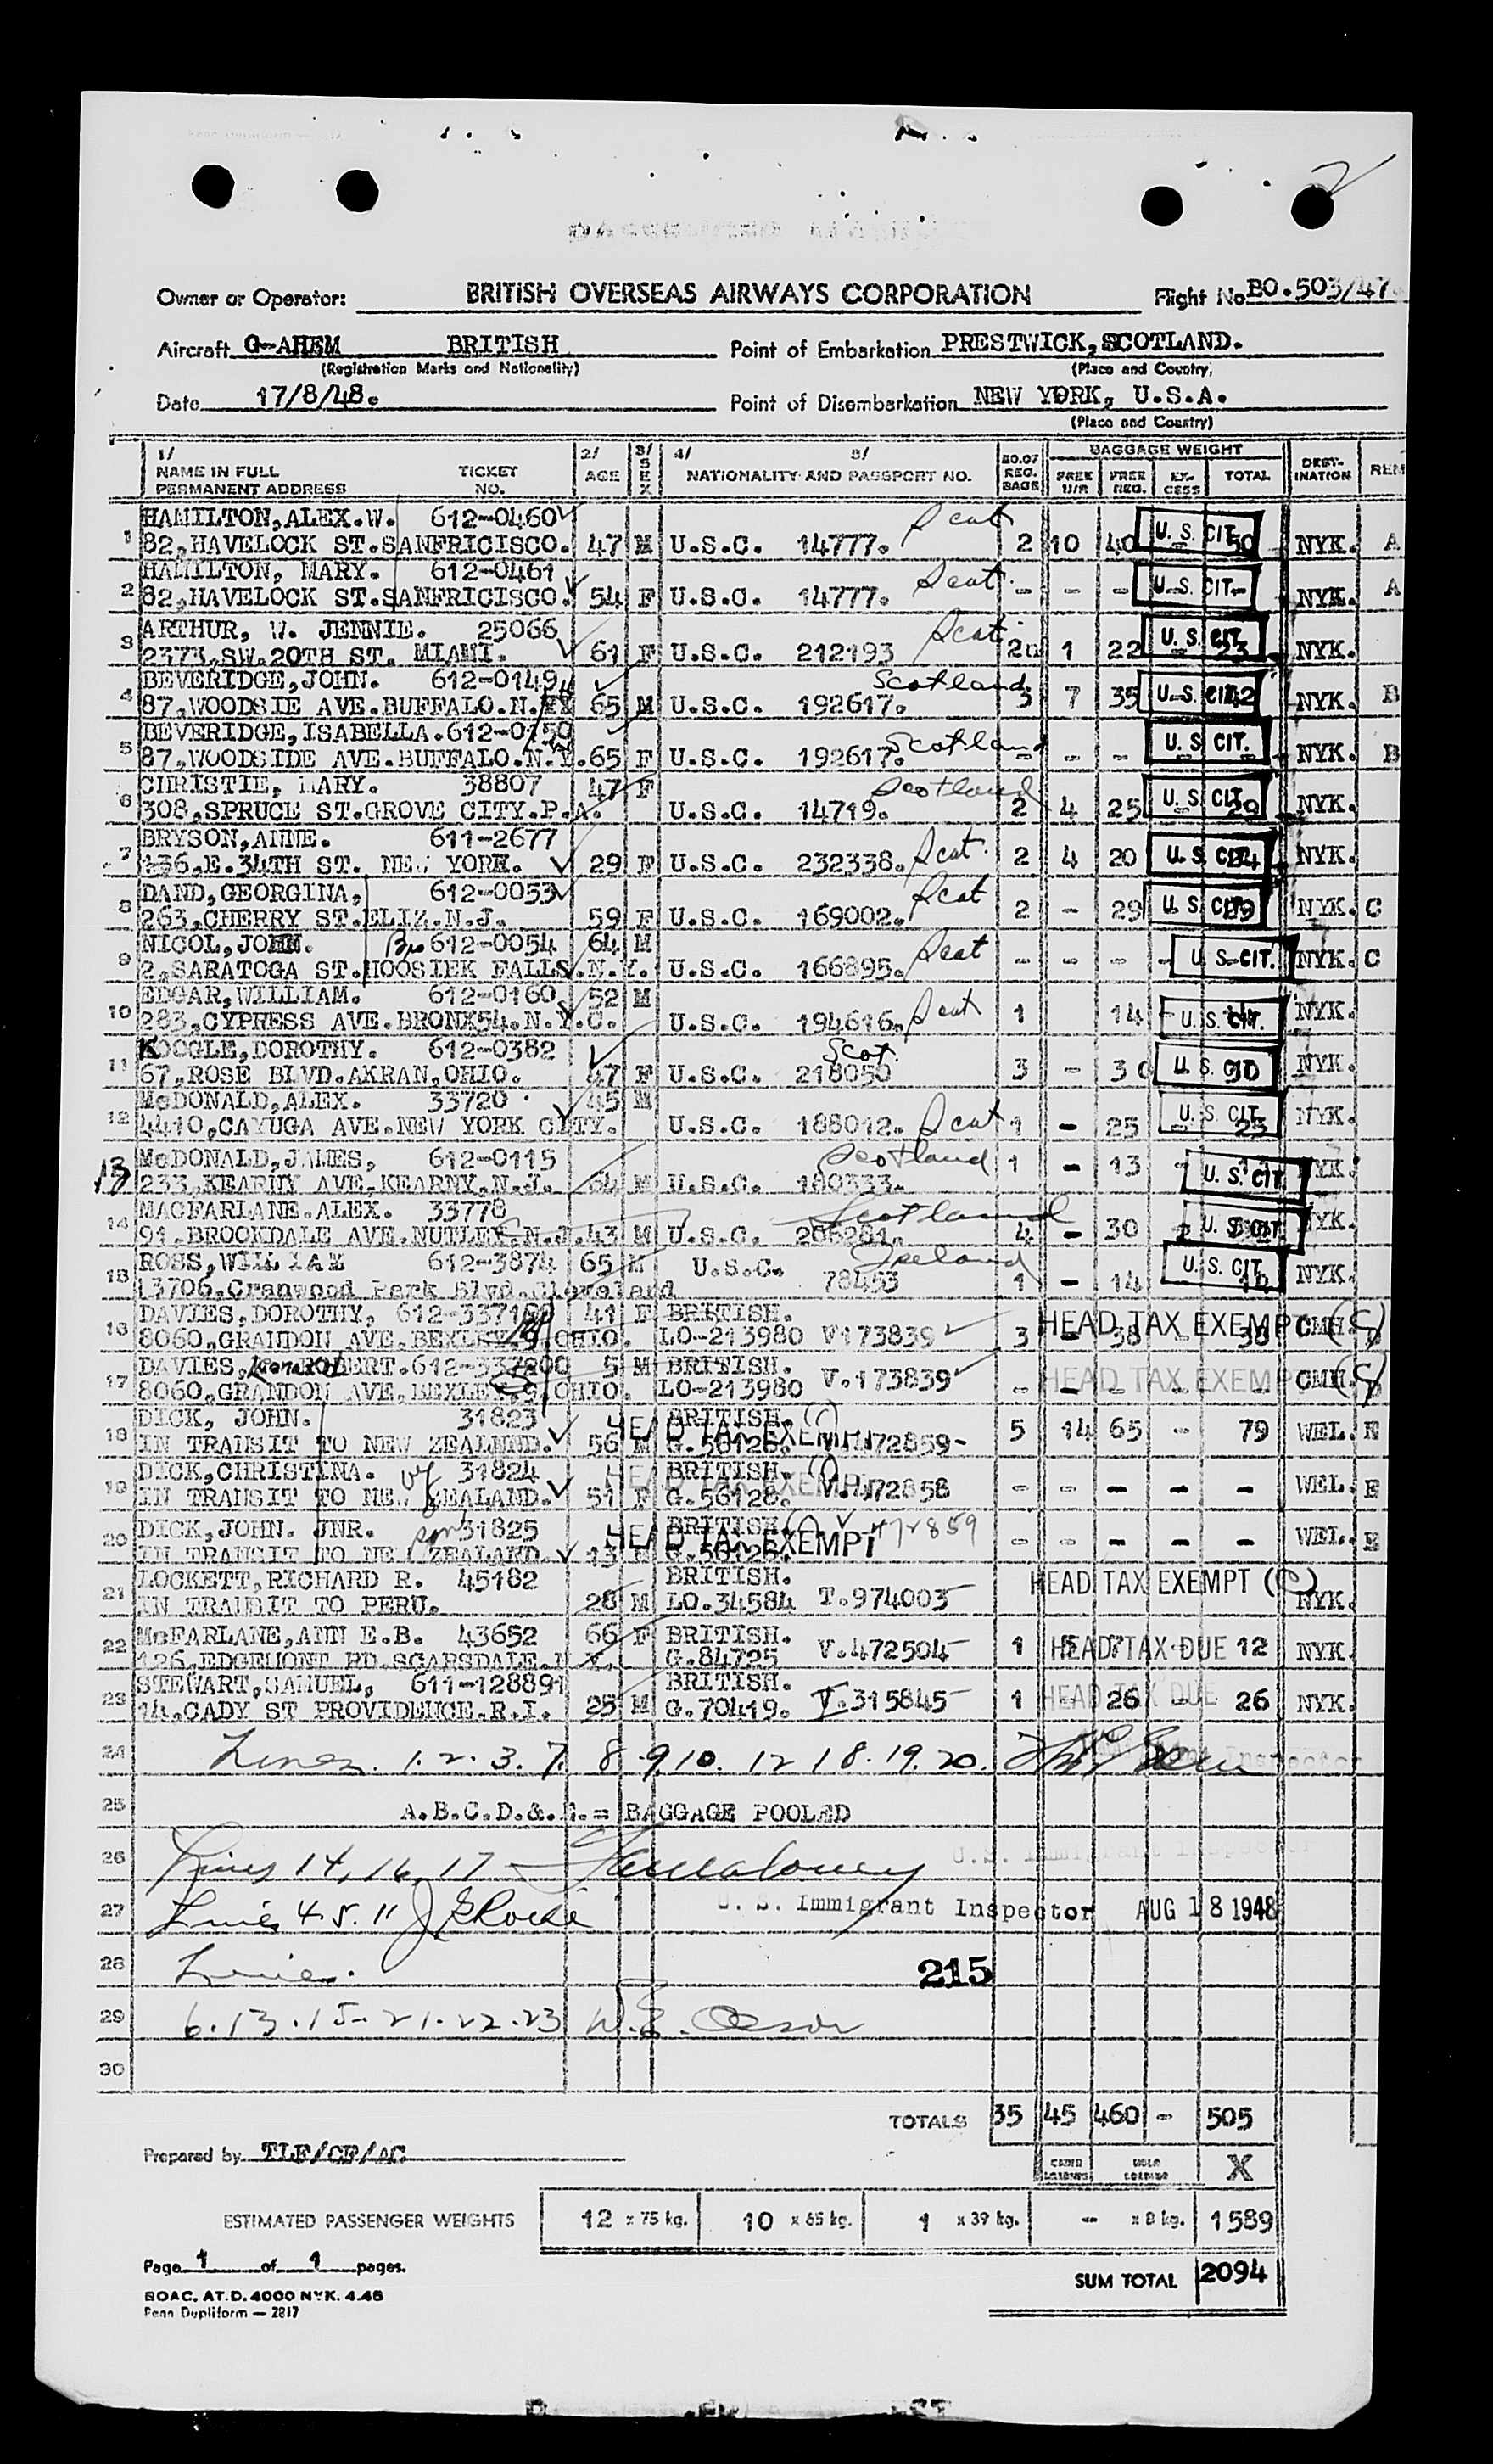 Owner or Operator: BRITISH OVERSEAS AIRWAYS CORPORATION Flight No BO.503/47
Aircraft G-AHEM BRITISH Point of Embarkation PRESTWICK, SCOTLAND.
(Registration Marks and Nationality) (Place and Country)
Date 17/8/48. Point of Disembarkation NEW YORK, U.S.A.
(Place and Country)
1/ NAME IN FULL PERMANENT ADDRESS TICKET NO. 2/ AGE 3/ SEX 4/ 5/ NATIONALITY AND PASSPORT NO. NO.OF REG. BAGS BAGGAGE WEIGHT FREE U/R FREE REG. EX-CESS TOTAL DEST-INATION REM
HAMILTON,ALEX.W. 612-0460 Scot
1 82,HAVELOCK ST.SANFRICISCO. 47 M U.S.C. 14777. 2 10 40 U.S. CIT. 50 NYK. A
HAMILTON, MARY. 612-0461 Scot.
2 82,HAVELOCK ST.SANFRICISCO. 54 F U.S.C. 14777. - - - U.S. CIT. - NYK. A
ARTHUR, W. JENNIE. 25066 Scot
3 2373,SW.20TH ST. MIAMI. 61 F U.S.C. 212193 2 1 22 U.S. CIT. 23 NYK.
BEVERIDGE,JOHN. 612-0149 Scotland
4 87,WOODSIE AVE.BUFFALO.N. 65 M U.S.C. 192617. 3 7 35 U.S. CIT. 42 NYK. B
BEVERIDGE,ISABELLA.612-0150 Scotland
5 87,WOODSIDE AVE.BUFFALO.N.Y. 65 F U.S.C. 192617. - - - U.S. CIT. - NYK. B
CHRISTIE, MARY. 38807 47 F Scotland
6 308,SPRUCE ST.GROVE CITY.P.A. U.S.C. 14719. 2 4 25 U.S. CIT. 29 NYK.
BRYSON,ANNE. 611-2677
7 136,E.34TH ST. NEW YORK. 29 F U.S.C. 232338. Scot. 2 4 20 U.S. CIT. 24 NYK.
DAND,GEORGINA, 612-0053 Scot
8 263,CHERRY ST.ELIZ.N.J. 59 F U.S.C. 169002. 2 - 29 U.S. CIT. 29 NYK. C
NICOL,JOHN. Bro 612-0054 64 M Scot
9 2,SARATOGA ST.HOOSIEK FALLS.N.Y. U.S.C. 166895. - - - - U.S. CIT. NYK. C
EDGAR,WILLIAM. 612-0160 52 M
10 283,CYPRESS AVE.BRONX54.N.Y.C. U.S.C. 194616. Scot 1 14 - U.S. CIT. 14 NYK.
KOOGLE,DOROTHY. 612-0382 Scot.
11 67,ROSE BLVD.AKRAN,OHIO. 47 F U.S.C. 218050 3 - 30 U.S. CIT. 30 NYK.
McDONALD,ALEX. 33720 45 M
12 4410,CAYUGA AVE.NEW YORK CITY. U.S.C. 188012. Scot 1 - 25 U.S. CIT. 25 NYK.
McDONALD,JAMES, 612-0115 Scotland
13 233,KEARNY AVE.KEARNY.N.J. 64 M U.S.C. 180333. 1 - 13 - U.S. CIT. NYK.
MACFARLANE.ALEX. 33778 Scotland
14 91.BROOKDALE AVE.NUTLEY.N.J. 43 M U.S.C. 206281. 4 - 30 U.S. CIT. NYK.
ROSS,WILLIAM 612-3874 65 M U.S.C. Ireland
15 13706,Cranwood Park Blvd.Cleveland 78453 1 - 14 U.S. CIT. 14 NYK.
DAVIES,DOROTHY, 41 F BRITISH. HEAD TAX EXEMPT (C)
16 8060,GRANDON AVE.BEXLEY 9,OHIO. LO-213980 V173839 3 - 38 - 38 CMH. D
DAVIES, 5 M BRITISH. HEAD TAX EXEMPT (C)
17 8060,GRANDON AVE.BEXLEY 9,OHIO. LO-213980 V.173839 - - - - - CMH. D
DICK, JOHN. 31823 BRITISH. (C)
18 IN TRANSIT TO NEW ZEALAND. 56 M HEAD TAX EXEMPT G.56126. V.472859- 5 14 65 - 79 WEL. E
DICK,CHRISTINA. wf 31824 BRITISH. (C)
19 IN TRANSIT TO NEW ZEALAND. 51 F HEAD TAX EXEMPT G.56128. V.472858 - - - - - WEL. E
DICK,JOHN. JNR. son 31825 BRITISH. V 472859
20 IN TRANSIT TO NEW ZEALAND. 13 M HEAD TAX EXEMPT G.56126. - - - - - WEL. E
LOCKETT,RICHARD R. 45182 BRITISH. HEAD TAX EXEMPT (C)
21 IN TRANSIT TO PERU. 28 M LO.34584 T.974003 NYK.
McFARLANE,ANN E.B. 43652 66 F BRITISH.
22 126,EDGEMONT RD.SCARSDALE.N.Y. G.84725 V.472504 1 5 7 HEAD TAX DUE 12 NYK.
STEWART,SAMUEL, 611-128891 BRITISH.
23 14,CADY ST PROVIDENCE.R.I. 25 M G.70419. V.315845 1 - 26 - HEAD TAX DUE 26 NYK.
24 Lines. 1.2.3.7. 8.9.10. 12 18.19.20. Inspector
25 A.B.C.D.&.E.= BAGGAGE POOLED
26 Lines 14, 16, 17 U.S. Immigrant Inspector
27 Lines 4.5.11 U. S. Immigrant Inspector AUG 18 1948
28 Lines. 215
29 6.13.15-21.22.23
30
TOTALS 35 45 460 - 505
Prepared by TLF/CF/AC CABIN LOADING HOLD LOADING X
ESTIMATED PASSENGER WEIGHTS 12 x 75 kg. 10 x 65 kg. 1 x 39 kg. - x 8 kg. 1589
Page 1 of 1 pages. SUM TOTAL 2094
BOAC. AT.D. 4000 NYK. 4.48
Penn Dupliform — 2817